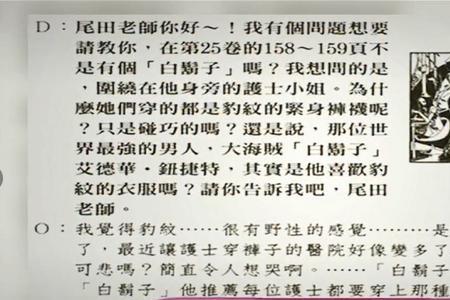 D：尾田老師你好～！我有個問題想要
請教你，在第25卷的158～159頁不
是有個「白鬍子」嗎？我想問的是
，圍繞在他身旁的護士小姐。為什
麼她們穿的都是豹紋的緊身褲襪呢
？只是碰巧的嗎？還是說，那位世
界最強的男人，大海賊「白鬍子」
艾德華・鈕捷特，其實是他喜歡豹
紋的衣服嗎？請你告訴我吧，尾田
老師。
O：我覺得豹紋……很有野性的感覺………是
了，最近讓護士穿褲子的醫院好像變多了
可悲嗎？簡直令人想哭啊。……「白鬍子
「白鬍子」他推薦每位護士都要穿上那種